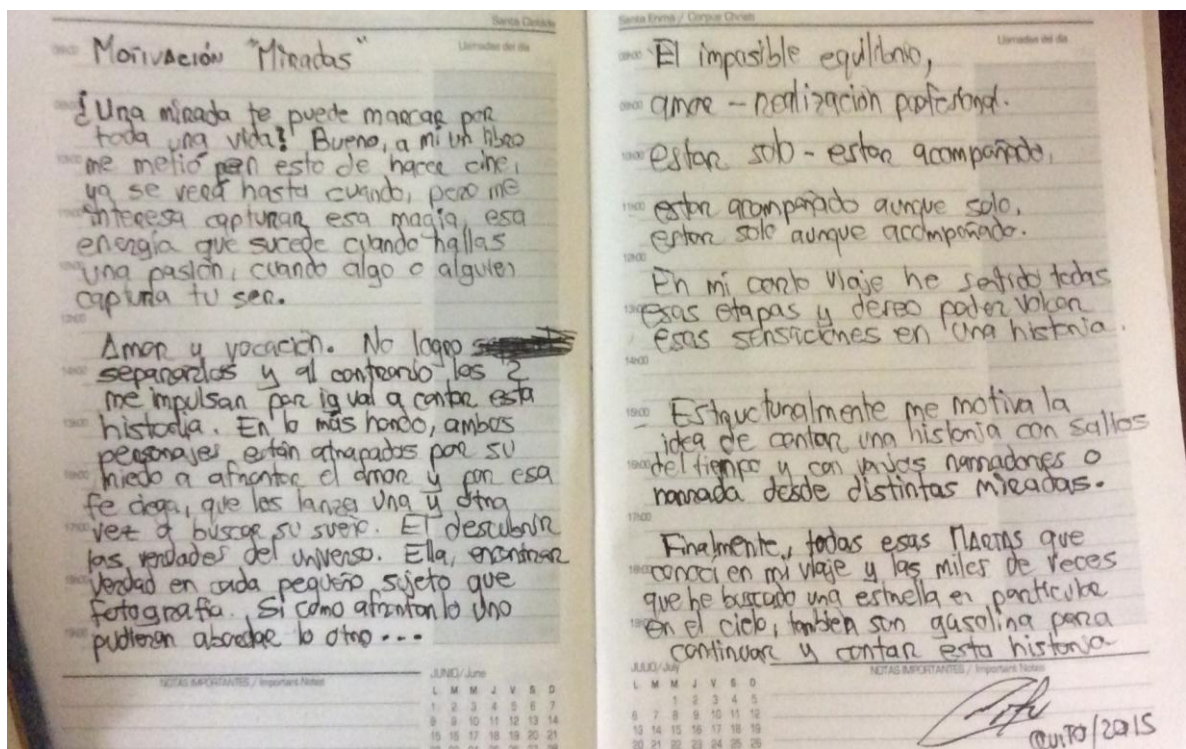 Santa Clotilde
Llamadas del día
Motivación "Miradas"
¡Una mirada te puede marcar por
toda una vida! Bueno, a mi un libro
me metió en esto de hacer cine,
ya se verá hasta cuando, pero me
interesa capturar esa magia, esa
energía que sucede cuando hallas
una pasión, cuando algo o alguien
captura tu ser.
Amor y vocación. No logro
separarlos y al contrario los 2
me impulsan por igual a contar esta
historia. En lo más hondo, ambos
personajes están atrapados por su
miedo a afrontar el amor y por esa
fe ciega, que los lanza una y otra
vez a buscar su sueño. El descubrir
las verdades del universo. Ella, encontrar
verdad en cada pequeño sujeto que
fotografía. Si como afrontan lo uno
pudieran abordar lo otro...
NOTAS IMPORTANTES / Important Notes
JUNIO/June
L M M J V S D
1 2 3 4 5 6 7
8 9 10 11 12 13 14
15 16 17 18 19 20 21
Santa Enma / Corpus Christi
Llamadas del día
El imposible equilibrio,
amor - realización profesional.
estar solo - estar acompañado,
estar acompañado aunque solo,
estar solo aunque acompañado.
En mi corto viaje he sentido todas
esas etapas y deseo poder volcar
esas sensaciones en una historia.
Estructuralmente me motiva la
idea de contar una historia con saltos
del tiempo y con varios narradores o
narrada desde distintas miradas.
Finalmente, todas esas MARTAS que
conocí en mi viaje y las miles de veces
que he buscado una estrella en particular
en el cielo, también son gasolina para
continuar y contar esta historia
JULIO/July
NOTAS IMPORTANTES / Important Notes
L M M J V S D
1 2 3 4 5
6 7 8 9 10 11 12
13 14 15 16 17 18 19
20 21 22 23 24 25 26
QUITO/2015